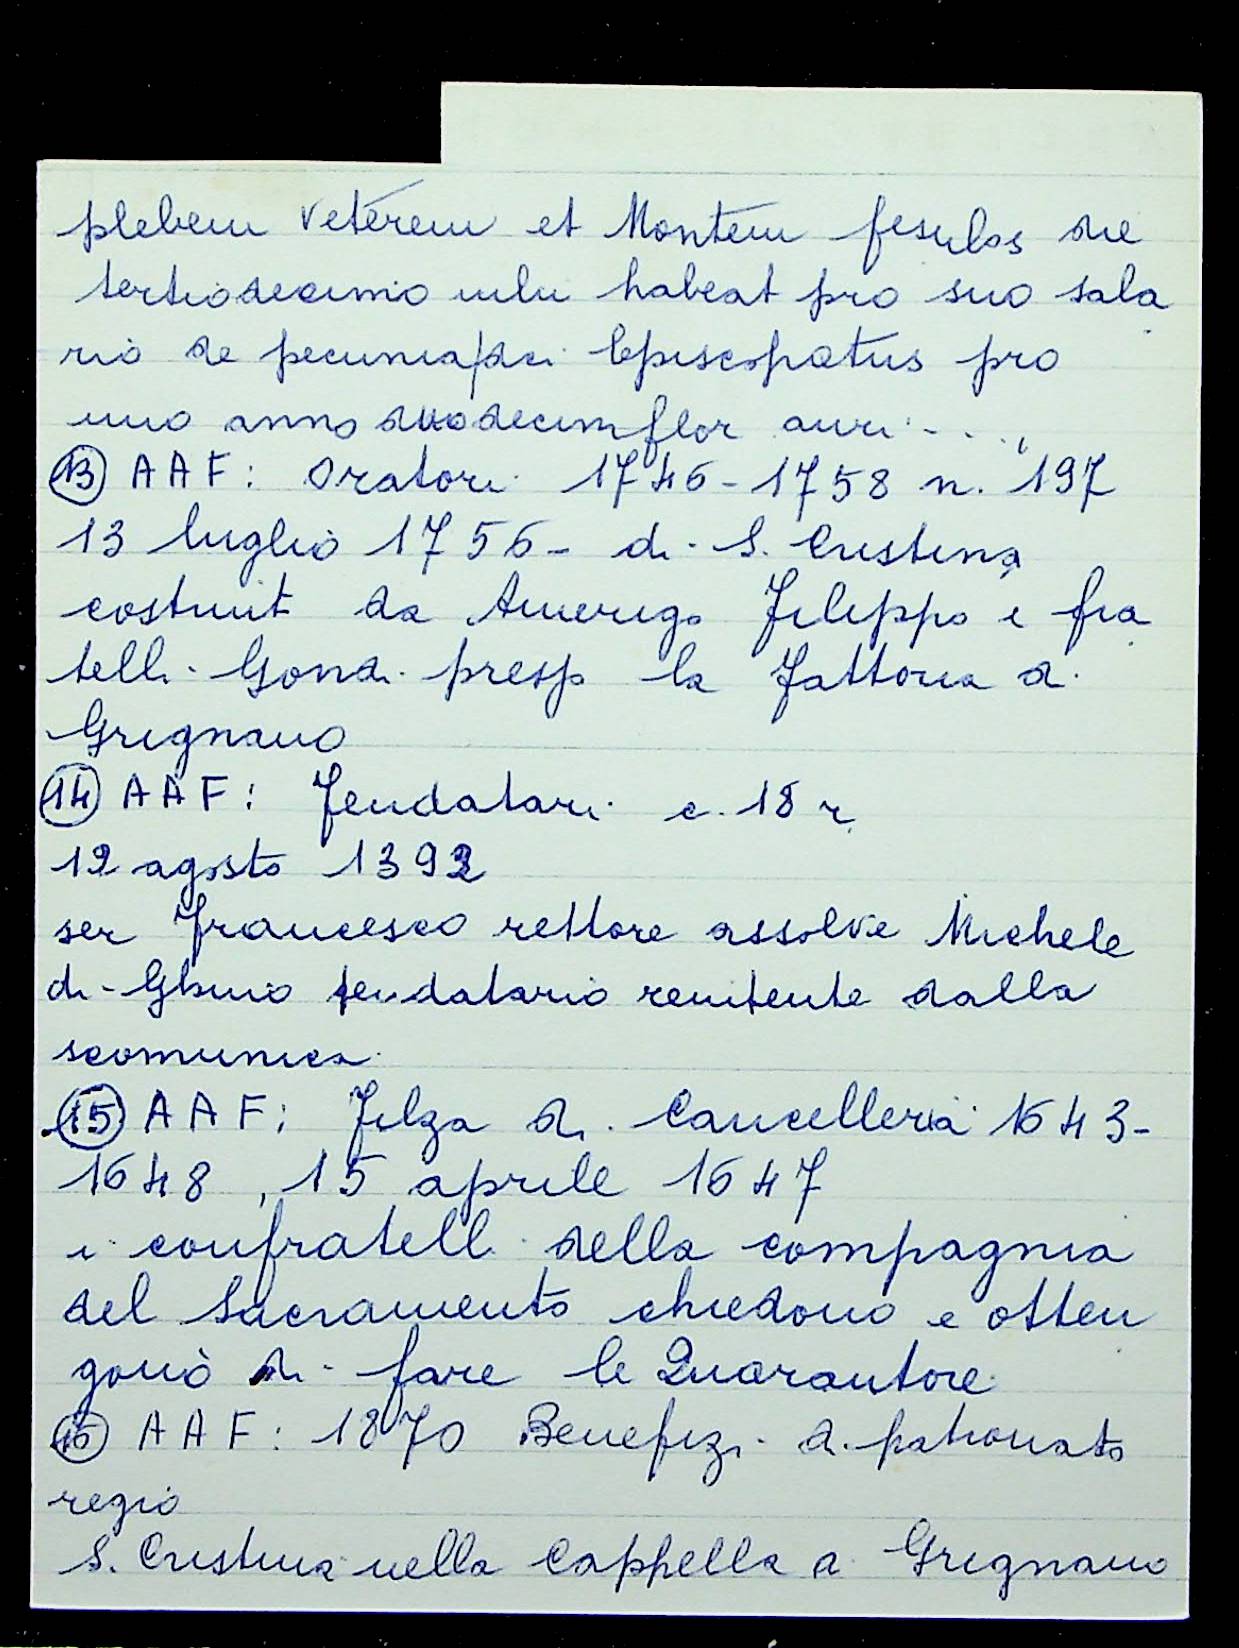 plebem veterem et Montem fesulos die
tertiodecimo iulii habeat pro suo sala
rio de pecunia dci Episcopatus pro
uno anno duodecim flor auri - . . ,
13 AAF: Oratori 1746-1758 n. 197
13 luglio 1756 - di S. Cristina
costruit da Amerigo Filippo e fra
telli Gondi presso la Fattoria di
Grignano
14 AAF: Feudatari c. 18 r
12 agosto 1392
ser Francesco rettore assolve Michele
di feudatario renitente dalla
scomunica
15 AAF: Filza di Cancelleria 1643-
1648, 15 aprile 1647
i confratelli della compagnia
del Sacramento chiedono e otten
gono di fare le Quarantore
16 AAF: 1870 Benefizi di patronato
regio
S. Cristina nella Cappella a Grignano